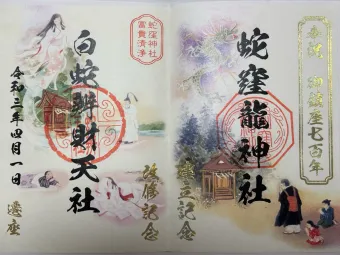 奉拝 御鎮座七百年
蛇窪龍神社
建立記念
蛇窪神社
富貴清浄
白蛇辨財天社
改修記念
令和三年四月一日
遷座